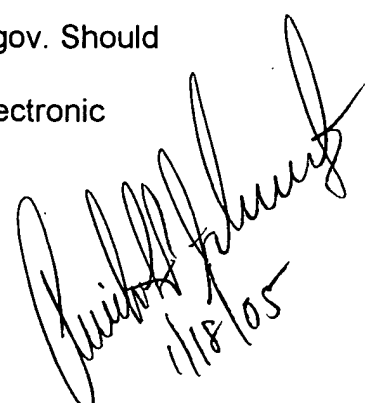 gov. Should
ectronic
1/18/05